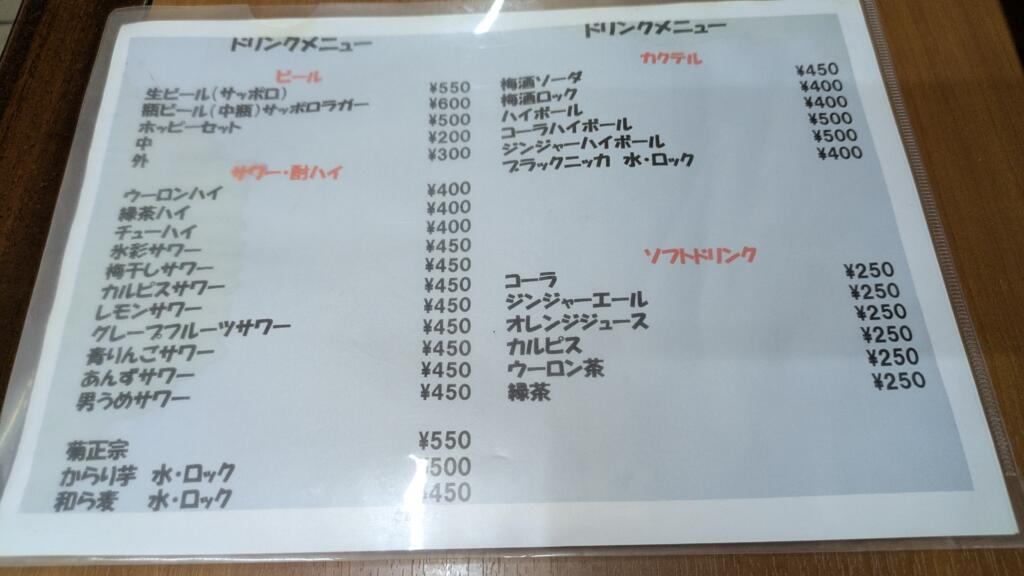 ドリンクメニュー
ビール
生ビール(サッポロ) ¥550
瓶ビール(中瓶)サッポロラガー ¥600
ホッピーセット ¥500
中 ¥200
外 ¥300
サワー・酎ハイ
ウーロンハイ ¥400
緑茶ハイ ¥400
チューハイ ¥400
氷彩サワー ¥450
梅干しサワー ¥450
カルピスサワー ¥450
レモンサワー ¥450
グレープフルーツサワー ¥450
青りんごサワー ¥450
あんずサワー ¥450
男うめサワー ¥450
菊正宗 ¥550
からり芋 水・ロック ¥500
和ら麦 水・ロック ¥450
ドリンクメニュー
カクテル
梅酒ソーダ ¥450
梅酒ロック ¥400
ハイボール ¥400
コーラハイボール ¥500
ジンジャーハイボール ¥500
ブラックニッカ 水・ロック ¥400
ソフトドリンク
コーラ ¥250
ジンジャーエール ¥250
オレンジジュース ¥250
カルピス ¥250
ウーロン茶 ¥250
緑茶 ¥250